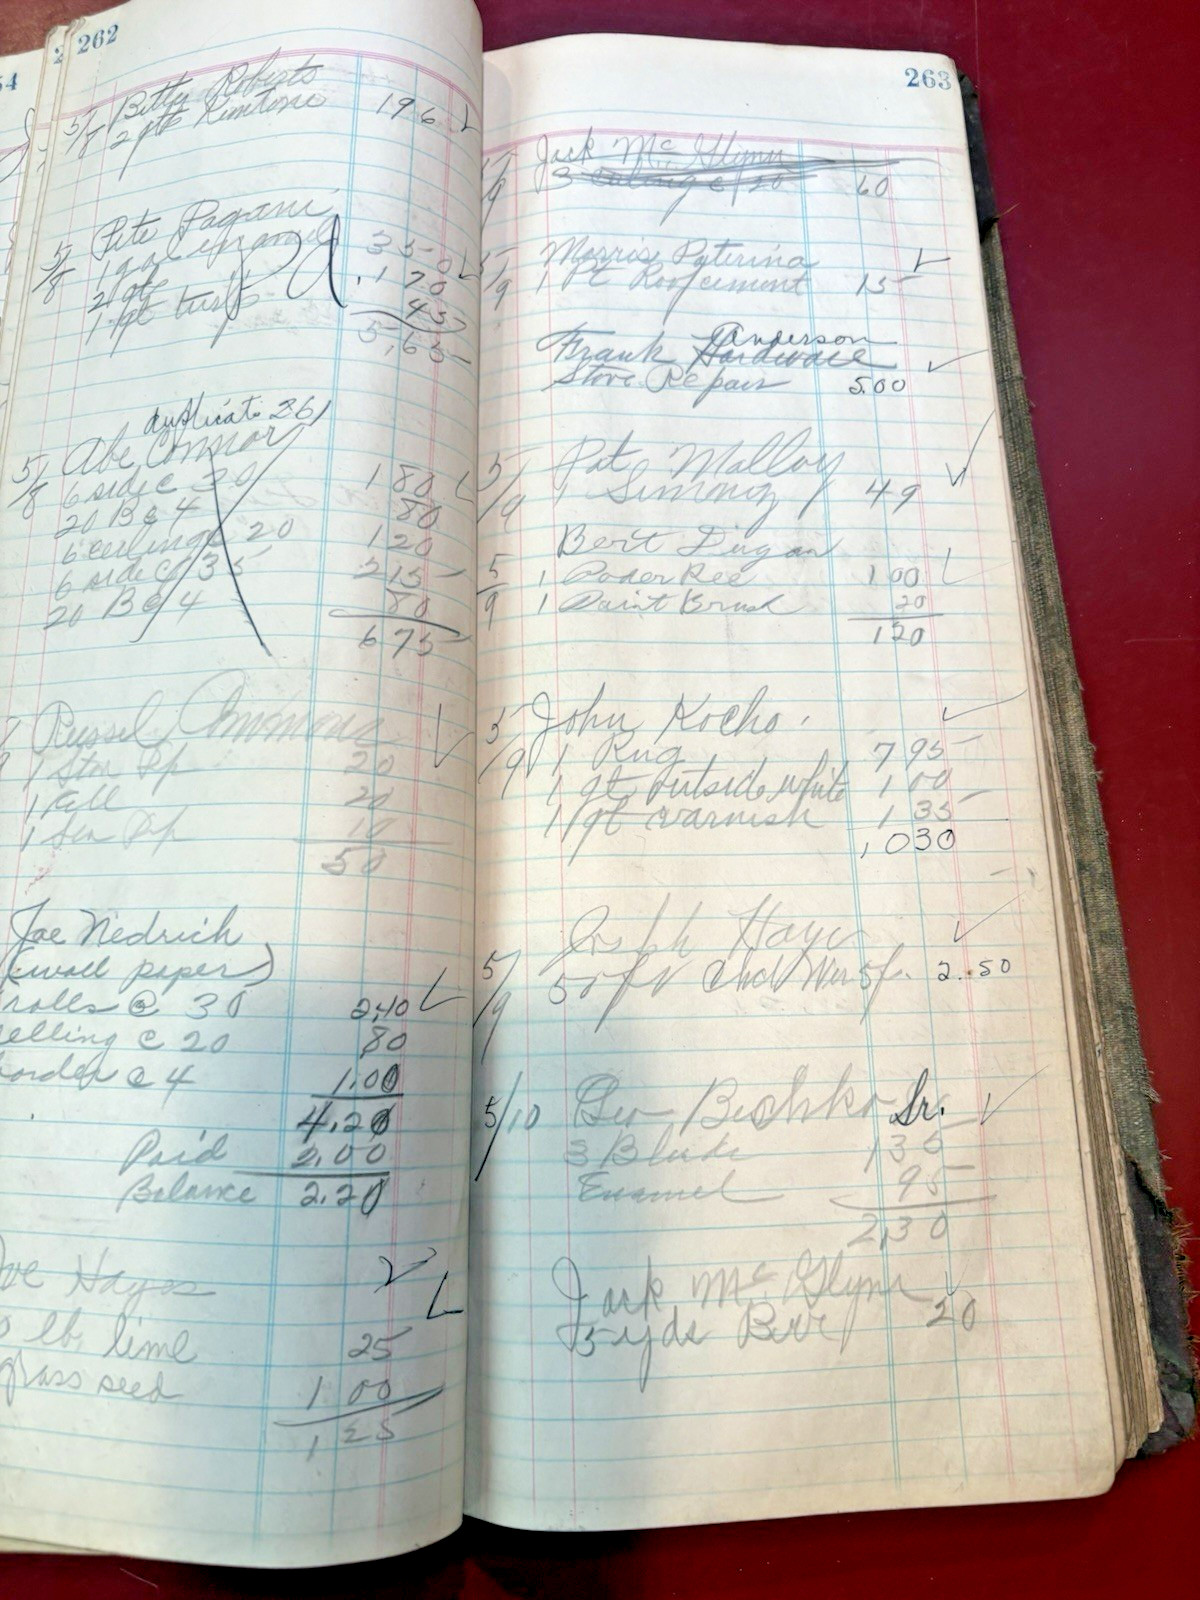 262
Betty Roberts
5/8 2 pts Kemtone 196
Pete Pagani
5/8 1 gal enamel 350
2 qts 170
1 qt turp 45
Pd
5,65
duplicate 261
Abe Connor
5/8 6 side @ 30 180
20 B @ 4 80
6 ceiling @ 20 120
6 side @ 35 215
20 B @ 4 80
675
Russel Ammons
1 20
1 20
1 10
50
Joe Nedrich
(wall paper)
rolls @ 30 2,40
elling @ 20 80
order @ 4 1.00
4,20
Paid 2,00
Balance 2.20
Joe Hayes
lb. lime 25
grass seed 1 00
1 25
263
Jack McGlynn
5/9 3 @ 20 60
Morris Peterina
5/9 1 Pt Roofcement 15
Anderson
Frank Hardware
Stove Repair 5.00
Pat Malloy
5/9 1 Simoniz 49
Bert Dugan
5/9 1 100
1 Paint Brush 20
120
5/9 John Kocho.
1 Rug 7 95
1 qt outside white 1 00
1 qt varnish 1 35
1030
Joseph Haye
5/9 50 ft 5¢ 2.50
5/10 Geo Beshko Sr.
3 135
Enamel 95
2,30
Jack McGlynn
5 yds 20